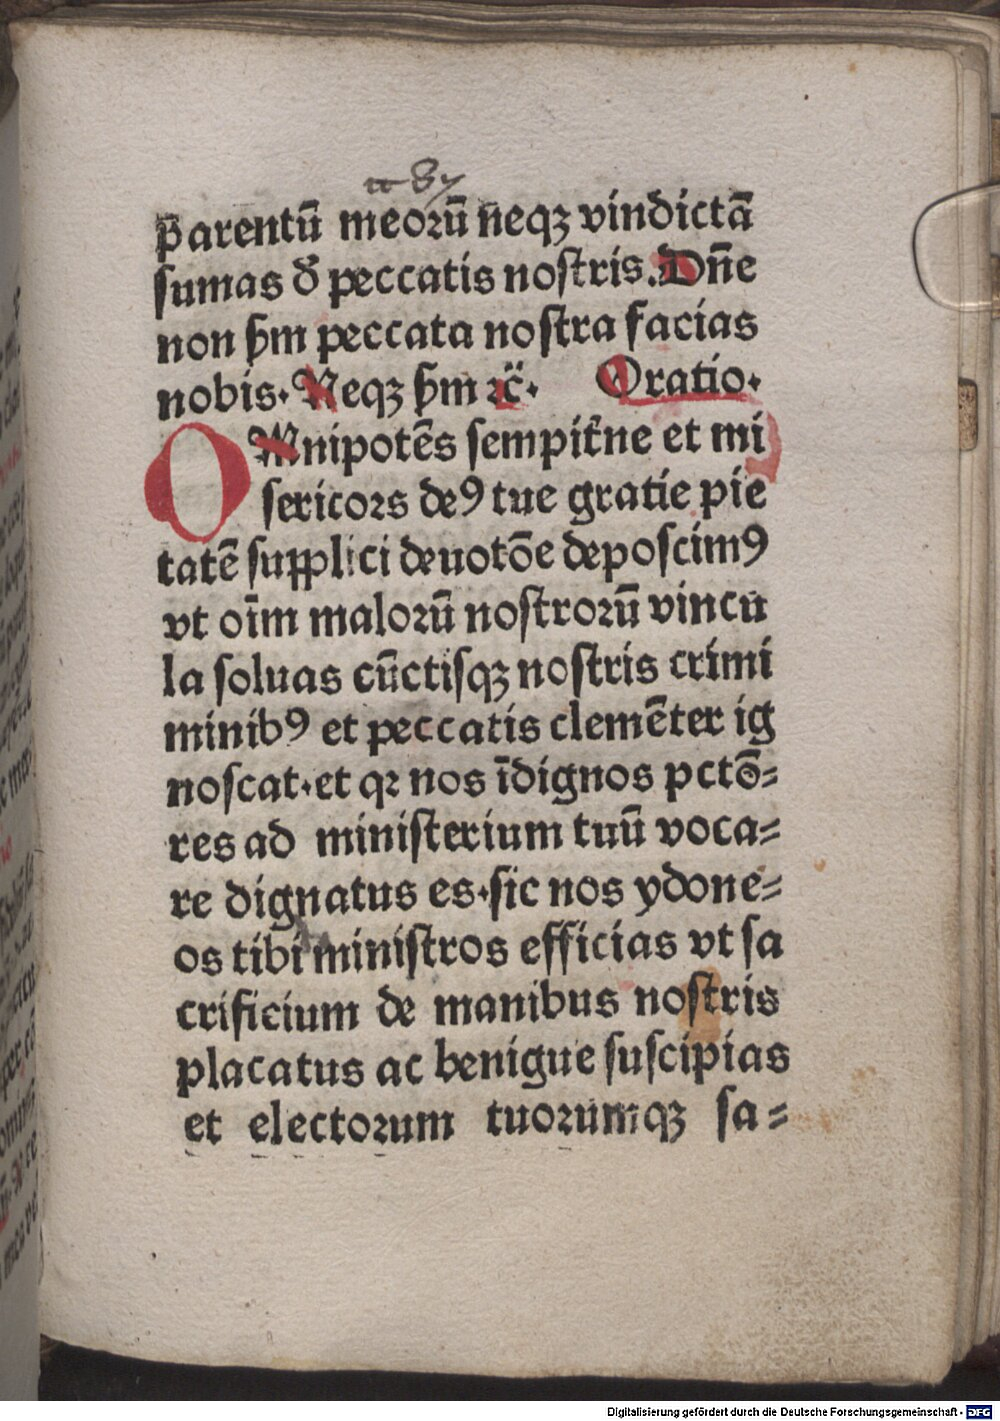 parentū meoꝝū neqꝫ vindictā
sumas ð peccatis nostris. Dn̄e
non ẜm peccata nostra facias
nobis. Neqꝫ ẜm ⁊c̈. Oratio.
OMnipotēs sempit̄ne et mi
sericors deꝰ tue gratie pie
tatē supplici deuotōe deposcimꝰ
vt oīm maloꝛū nostroꝛū vincu
la soluas cūctisqꝫ nostris crimi
minibꝰ et peccatis clemēter ig
noscat. et qꝛ nos īdignos pctō=
res ad ministerium tuū voca=
re dignatus es. sic nos ydone=
os tibi ministros efficias vt sa
crificium de manibus nostris
placatus ac benigue suscipias
et electoꝛum tuoꝛumqꝫ sa=
Digitalisierung gefördert durch die Deutsche Forschungsgemeinschaft - DFG